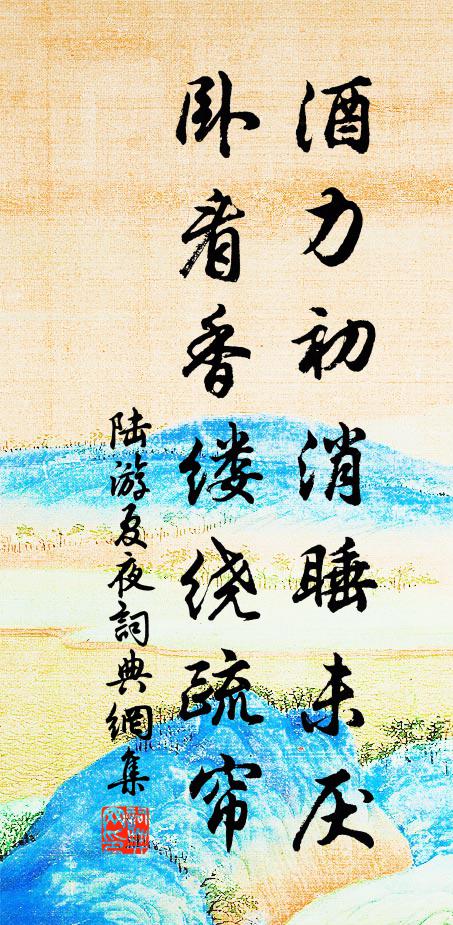 酒力初消睡未厌
卧看香缕绕疏帘
陆游夏夜詞典網集